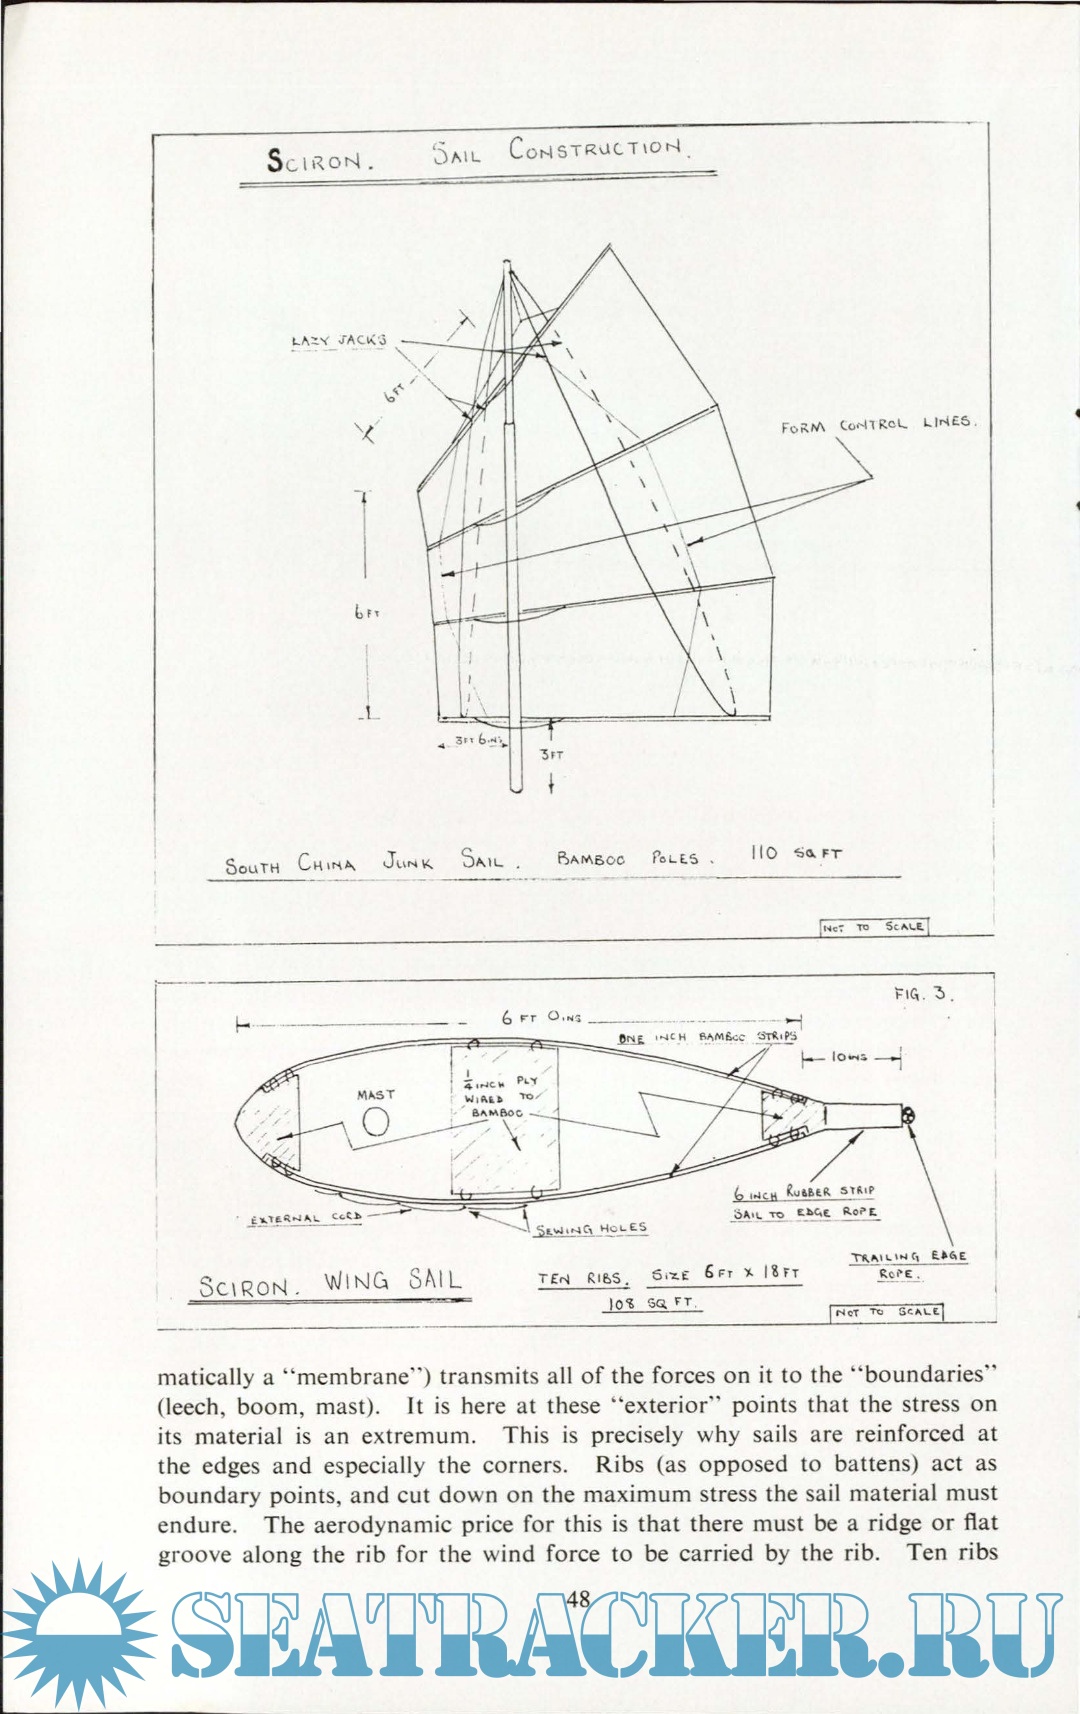 SCIRON. SAIL CONSTRUCTION.
LAZY JACKS
6 FT
FORM CONTROL LINES.
6 FT
3 FT 6 INS
3 FT
SOUTH CHINA JUNK SAIL. BAMBOO POLES. 110 SQ FT
NOT TO SCALE
FIG. 3.
6 FT 0 INS
ONE INCH BAMBOO STRIPS
10 INS
MAST
1/4 INCH PLY
WIRED TO
BAMBOO
6 INCH RUBBER STRIP
SAIL TO EDGE ROPE
EXTERNAL CORD
SEWING HOLES
TRAILING EDGE
ROPE.
SCIRON. WING SAIL
TEN RIBS. SIZE 6 FT X 18 FT
108 SQ FT.
NOT TO SCALE
matically a “membrane”) transmits all of the forces on it to the “boundaries”
(leech, boom, mast). It is here at these “exterior” points that the stress on
its material is an extremum. This is precisely why sails are reinforced at
the edges and especially the corners. Ribs (as opposed to battens) act as
boundary points, and cut down on the maximum stress the sail material must
endure. The aerodynamic price for this is that there must be a ridge or flat
groove along the rib for the wind force to be carried by the rib. Ten ribs
48
SEATRACKER.RU